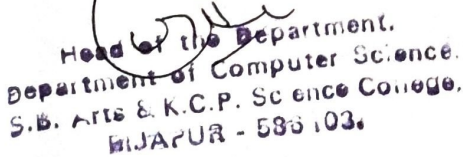 Head of the Department.
Department of Computer Science.
S.B. Arts & K.C.P. Sc ence College,
BIJAPUR - 586 103.